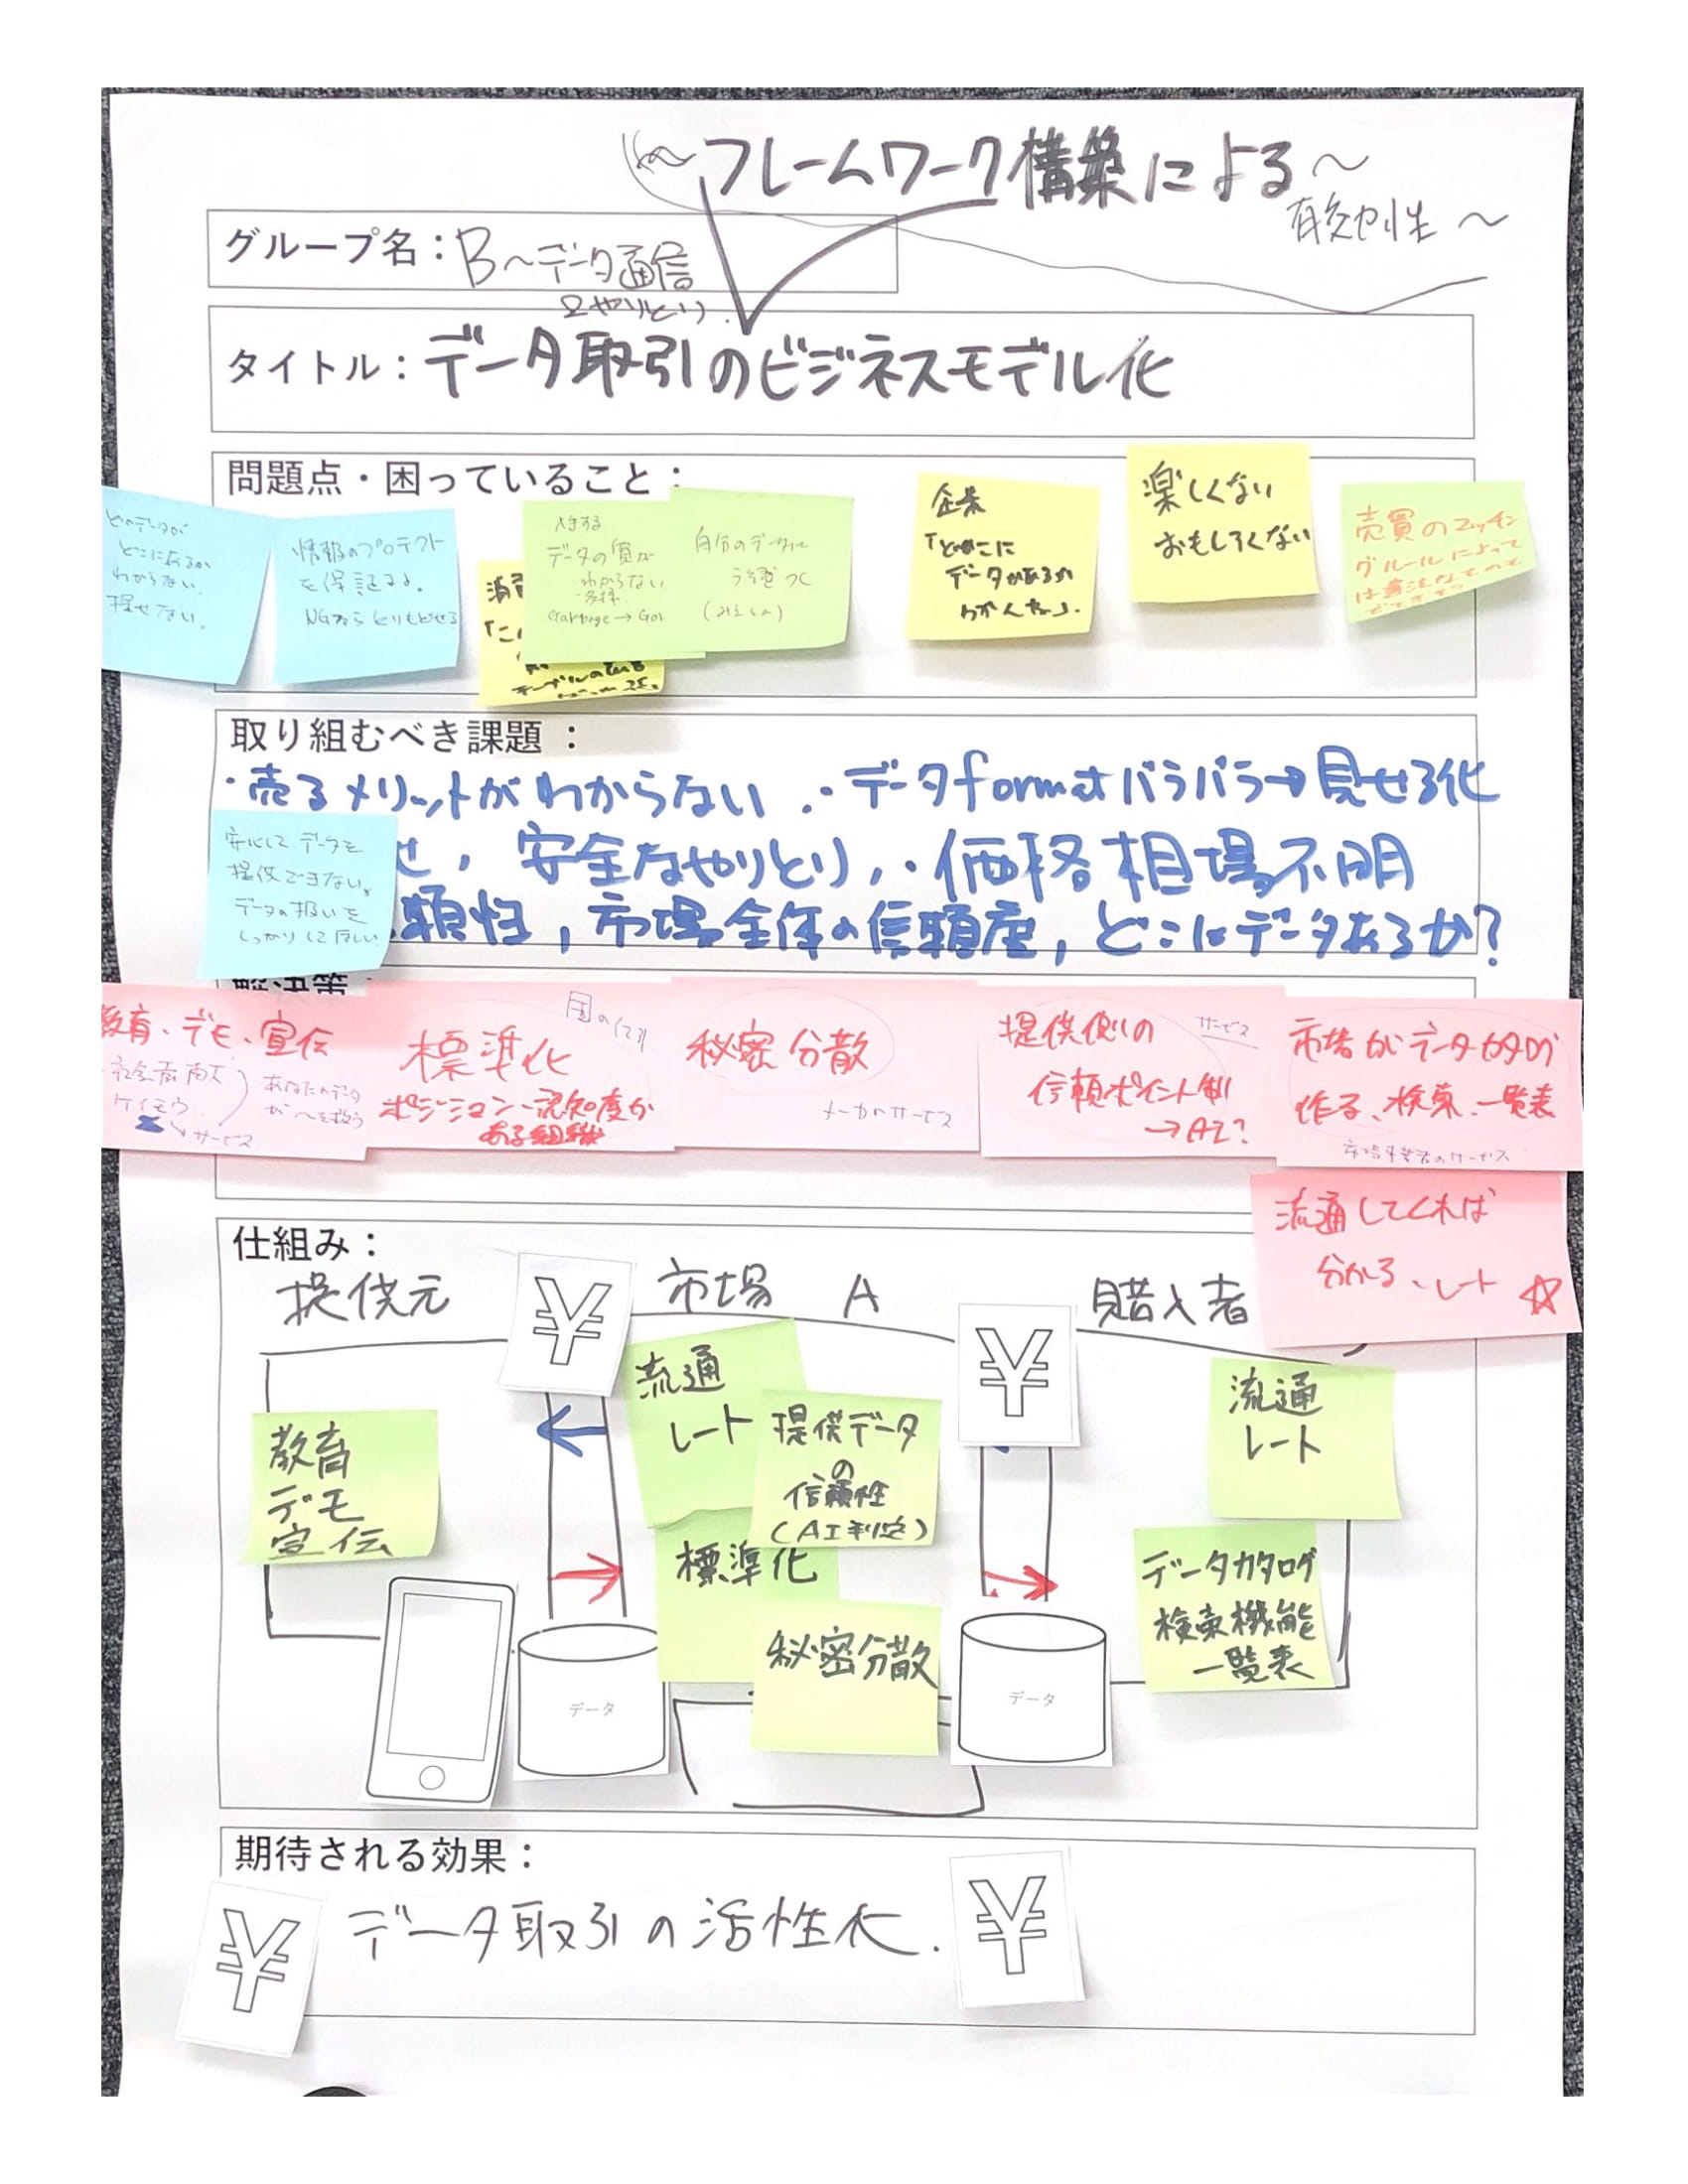 ～フレームワーク構築による～
有効性～
グループ名：B～データ通信
やりとり
タイトル：データ取引のビジネスモデル化
問題点・困っていること：
どのデータが
どこにあるか
わからない
探せない。
情報のプロテクト
を保証する。
NGならとりもどせる
データの質が
わからない
多様
Garbage→
自分のデータに
(みえない)
企業
「どこに
データがあるか
わかんねー」
楽しくない
おもしろくない
売買のマッチン
グルールによって
は違法なものも
取り組むべき課題：
・売るメリットがわからない・データformatバラバラ→見せる化
せ，安全なやりとり，・価格相場不明
頼性，市場全体の信頼度，どこにデータあるか？
安心してデータを
提供できない。
データの扱いを
しっかりしてほしい
解決策：
教育、デモ、宣伝
社会貢献
ケイモウ
サービス
あなたのデータ
が〜を救う
標準化
国の
ポジション、認知度が
ある組織
秘密分散
メーカのサービス
提供側の
サービス
信頼ポイント制
→AI?
市場がデータカタログ
作る、検索、一覧表
市場事業者のサービス
流通してくれば
分かる、レート ☆
仕組み：
提供元
¥
市場 A
¥
購入者
教育
デモ
宣伝
流通
レート
提供データ
の
信頼性
(AI判定)
標準化
秘密分散
流通
レート
データカタログ
検索機能
一覧表
データ
データ
期待される効果：
¥
データ取引の活性化.
¥